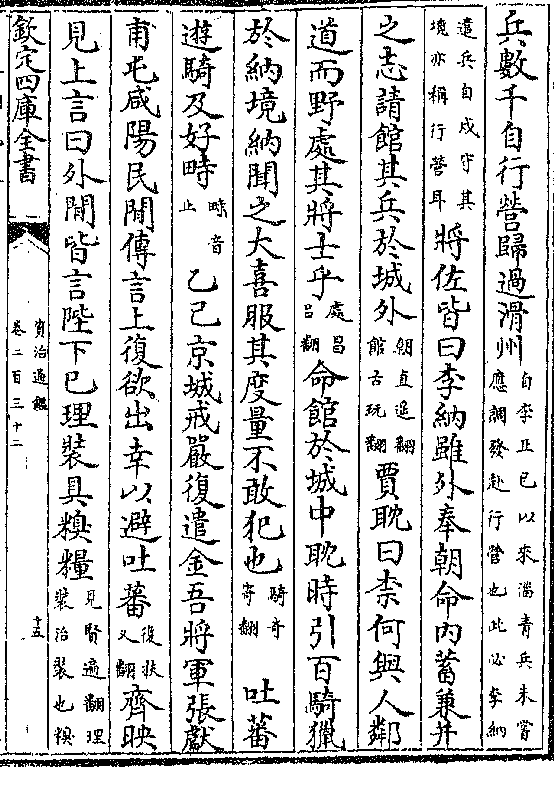 兵數千自行營歸過滑州自李正已以來淄青兵未嘗應調發赴行營也此必李納
遣兵自戍守其境亦稱行營耳將佐皆曰李納雖外奉朝命内蓄兼并
之志請館其兵於城外朝直遥翻館古玩翻賈耽曰柰何與人鄰
道而野處其將士乎處昌吕翻命館於城中耽時引百騎獵
於納境納聞之大喜服其度量不敢犯也騎奇寄翻吐蕃
遊騎及好畤畤音止乙已京城戒嚴復遣金吾將軍張獻
甫屯咸陽民閒傳言上復欲出幸以避吐蕃復扶又翻齊映
見上言曰外閒皆言陛下已理裝具糗糧見賢遍翻理裝治裝也糗
欽定四庫全書
資治通鑑
卷二百三十二
十五